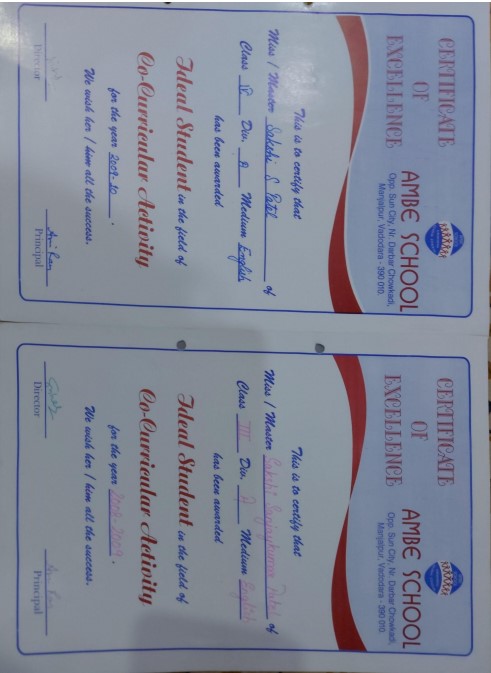 CERTIFICATE
OF
EXCELLENCE
AMBE SCHOOL
Opp. Sun City, Nr. Darbar Chowkadi,
Manjalpur, Vadodara - 390 010.
This is to certify that
Miss / Master Sakshi S Patel of
Class IV Div. A Medium English
has been awarded
Ideal Student in the field of
Co-Curricular Activity
for the year 2009-10.
We wish her / him all the success.
Director
Principal
CERTIFICATE
OF
EXCELLENCE
AMBE SCHOOL
Opp. Sun City, Nr. Darbar Chowkadi,
Manjalpur, Vadodara - 390 010.
This is to certify that
Miss / Master Sakshi Sanjaykumar Patel of
Class III Div. A Medium English
has been awarded
Ideal Student in the field of
Co-Curricular Activity
for the year 2008-2009.
We wish her / him all the success.
Director
Principal